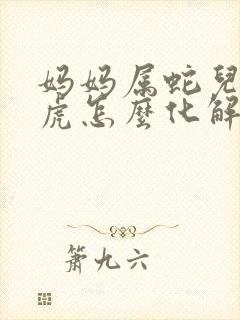 妈妈属蛇兒
虎怎麼化解
箫九六